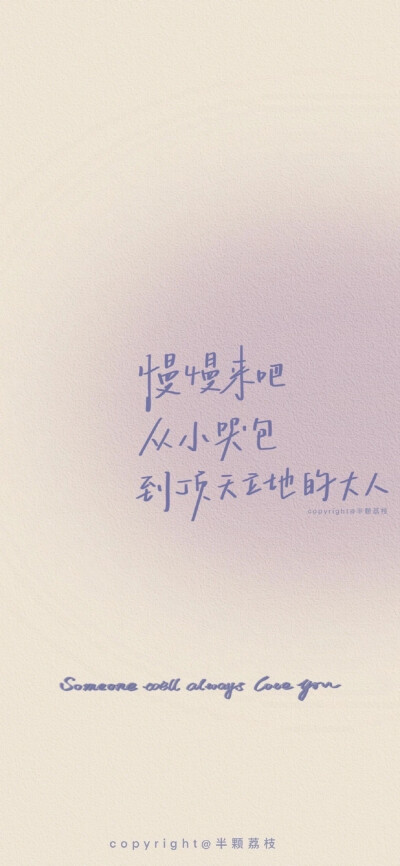 慢慢来吧
从小哭包
到顶天立地的大人
copyright@半颗荔枝
Someone will always love you
copyright@半颗荔枝